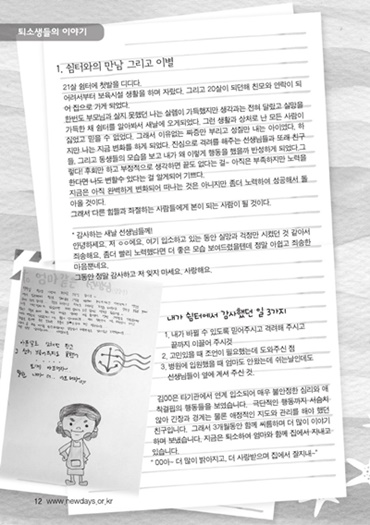 퇴소생들의 이야기
1. 쉼터와의 만남 그리고 이별
21살 쉼터에 첫발을 디디다.
어려서부터 보육시설 생활을 하며 자랐다. 그리고 20살이 되던해 친모와 연락이 되
어 집으로 가게 되었다.
한번도 부모님과 살지 못했던 나는 설렘이 가득했지만 생각과는 전혀 달랐고 실망을
가득한 채 쉼터를 알아봐서 새날에 오게되었다. 그런 생활과 상처로 난 모든 사람이
싫었고 믿을 수 없었다. 그래서 이유없는 짜증만 부리고 성질만 내는 아이였다. 하
지만 나는 지금 변화를 하게 되었다. 진심으로 격려를 해주는 선생님들과 또래 친구
들, 그리고 동생들의 모습을 보고 내가 왜 이렇게 행동을 했을까 반성하게 되었다.그
렇다! 후회만 하고 부정적으로 생각하면 끝이 없다는 걸~ 아직은 부족하지만 노력을
한다면 나도 변할수 있다는 걸 알게되어 기쁘다.
지금은 아직 완벽하게 변화되어 떠나는 것은 아니지만 좀더 노력하여 성공해서 돌
아올 것이다.
그래서 다른 힘들과 좌절하는 사람들에게 본이 되는 사람이 될 것이다.
* 감사하는 새날 선생님들께!
안녕하세요. 저 ㅇㅇ예요. 여기 입소하고 있는 동안 실망과 걱정만 시켰던 것 같아서
죄송해요. 좀더 빨리 노력했다면 더 좋은 모습 보여드렸을텐데 정말 아쉽고 죄송한
마음뿐네요.
그동안 정말 감사하고 저 잊지 마세요. 사랑해요.
내가 쉼터에서 감사했던 일 3가지
1. 내가 바뀔 수 있도록 믿어주시고 격려해 주시고
끝까지 이끌어 주시것
2. 고민있을 때 조언이 필요했는데 도와주신 점
3. 병원에 입원했을 때 엄마도 안왔는데 쉬는날인데도
선생님들이 옆에 계셔 주신 것.
김00은 타기관에서 연계 입소되어 매우 불안정한 심리와 애
착결핍의 행동들을 보였습니다. 극단적인 행동까지 서슴치
않아 긴장과 경계는 물론 애정적인 지도와 관리를 해야 했던
친구입니다. 그래서 3개월동안 함께 씨름하며 더 많이 이야기
하며 보냈습니다. 지금은 퇴소하여 엄마와 함께 집에서 지내고
있습니다.
" 00아~ 더 많이 밝아지고, 더 사랑받으며 집에서 잘지내~"
12 www.newdays.or.kr